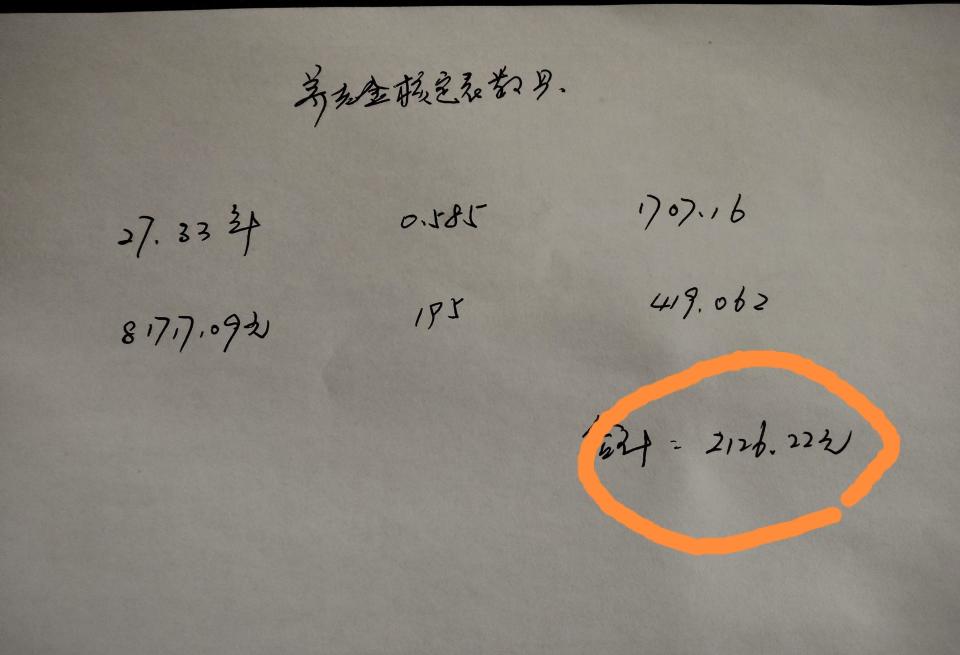 养老金核定表数具.
27.33年 0.585 1707.16
81717.09元 195 419.062
合计 = 2126.22元